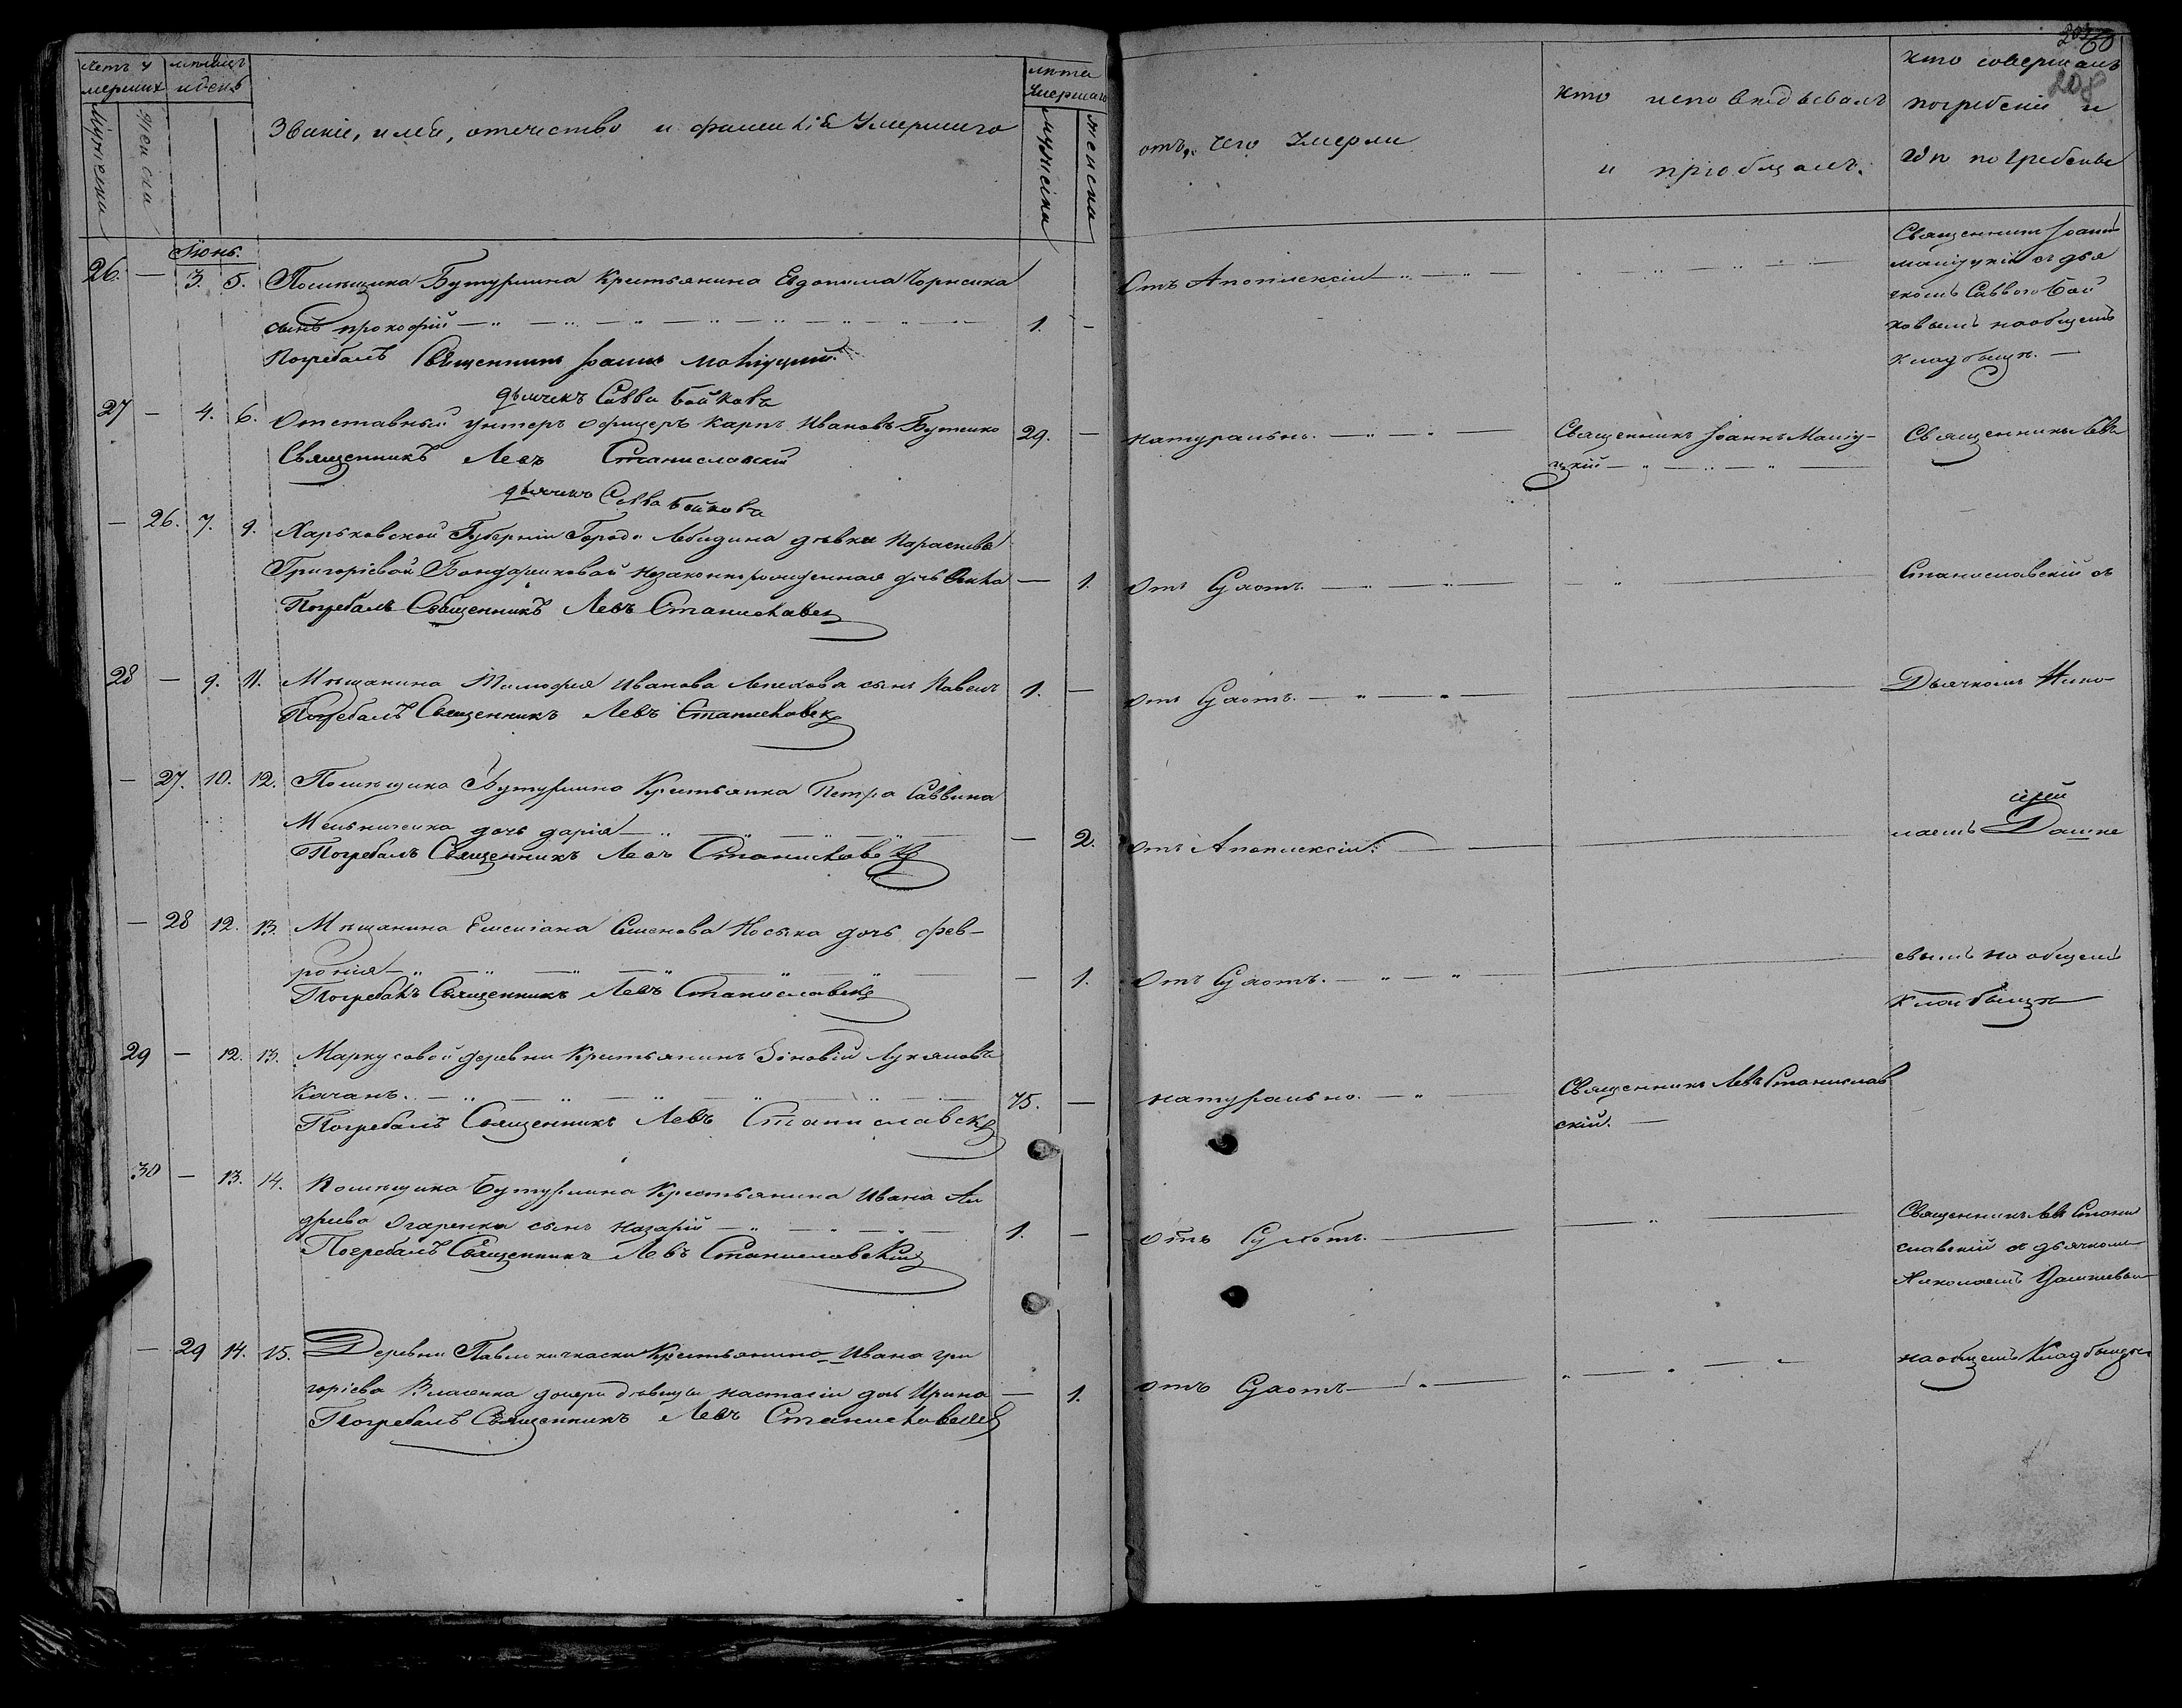 203
60
208
летъ у
мерших
Мужеска
Женска
месяцъ
и день
Званіе, имя, отечество и фамилія Умершаго
лета
Умершаго
мужеска
женска
отъ чего Умерли
кто исповедывалъ
и пріобщалъ.
кто совершалъ
погребеніе и
где погребены
Іюнь.
26. — 3. 5. Помѣщика Бутурлина Крестьянина Евдокима Чорненка
сынъ прокофій — 1. —
Погребалъ Священникъ Іоаннъ
дьячекъ Савва Бойковъ
Отъ Апоплексіи
Священникъ Іоаннъ
съ дья
чкомъ Саввою Бой
ковымъ на общемъ
Кладбищѣ. —
27 — 4. 6. Отставный унтеръ офицеръ Карпъ Ивановъ Бутенко 29. —
Священникъ Левъ Станиславскій
дьячекъ Савва Бойковъ
натурально. —
Священникъ Іоаннъ
цкій —
Священникъ Левъ
— 26. 7. 9. Харьковской Губерніи Города Лебедина дѣвки Параскевы
Григоріевой Бондаренковой незаконнорожденная дочь — 1.
Погребалъ Священникъ Левъ Станиславск
Отъ Сухотъ. —
Станиславскій съ
28 — 9. 11. Мѣщанина Тимофея Иванова Лепехова сынъ Павелъ 1. —
Погребалъ Священникъ Левъ Станиславск
Отъ Сухотъ. —
Дьячкомъ Нико-
— 27. 10. 12. Помѣщика Бутурлина Крестьянина Петра Саввина
Мельниченка дочь Дарія — 2.
Погребалъ Священникъ Левъ Станиславск
Отъ Апоплексіи. —
лаемъ Дашке
— 28 12. 13. Мѣщанина Емельяна Семенова Носика дочь Фев-
ронія — 1.
Погребалъ Священникъ Левъ Станиславск
Отъ Сухотъ. —
евымъ на общемъ
Кладбищѣ
29 — 12. 13. Маркусовой деревни Крестьянинъ Зіновій Лукяновъ
Качанъ. — 75. —
Погребалъ Священникъ Левъ Станиславск
натурально. —
Священникъ Левъ Станислав
скій. —
30 — 13. 14. Помѣщика Бутурлина Крестьянина Ивана Ан
дреева Огаренка сынъ Назарій — 1. —
Погребалъ Священникъ Левъ Станиславскій
отъ Сухотъ. —
Священникъ Левъ Стани
славскій съ дьячкомъ
Николаемъ Дашкевы
— 29 14. 15. Деревни Павлокичкаски Крестьянина Ивана Гри
горіева Власенка дочери дѣвицы Настасіи дочь Ирина — 1.
Погребалъ Священникъ Левъ Станиславск
отъ Сухотъ —
на общемъ Кладбищѣ